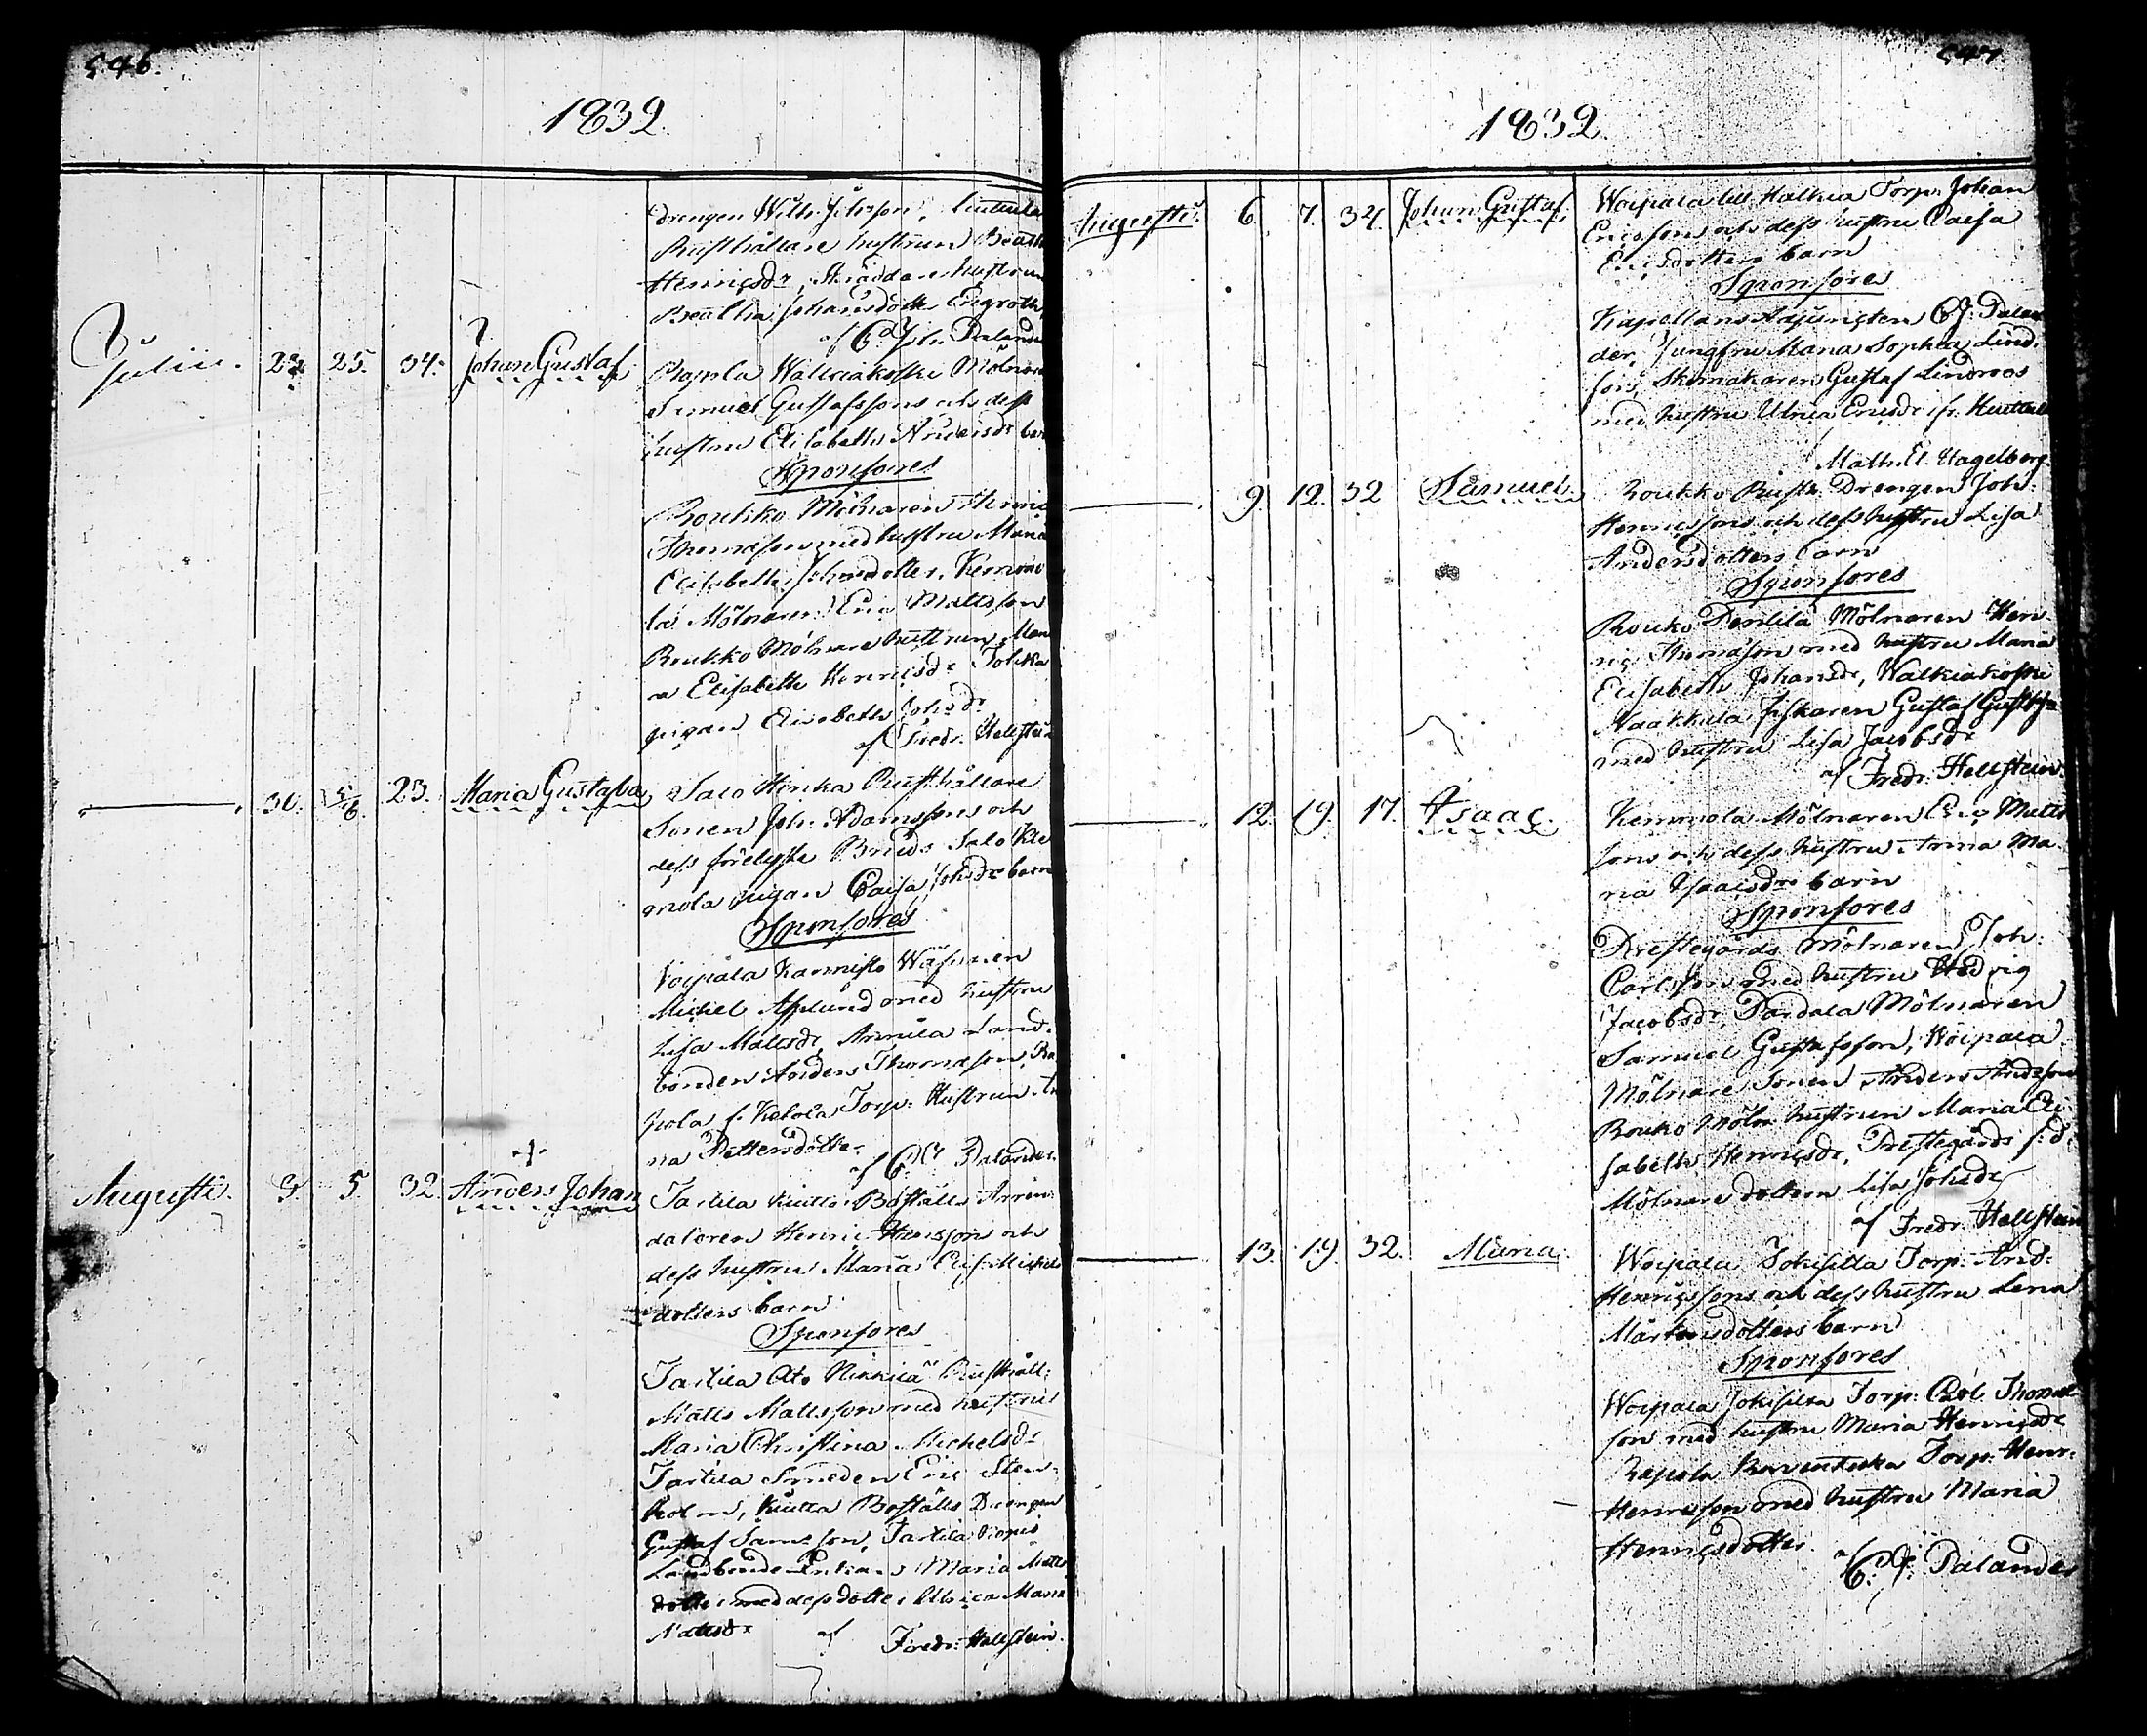 546.
1832.
Drengen Wilh: Johsson,
Rusthållare hustrun
Henricsdr, Skräddare hustrun
Johansdotter Engroth
af C. J. Palander
Juliii. 25. 34. Johan Gustaf
Rapola Walkiakoski Mölnaren
Samuel Gustafssons och dess
hustru Elisabeth Andersdr barn
Sponsores
Roukko Mölnaren Henric
Thomasson med hustru Maria
Elisabeth Johansdotter, Kemmo
la Mölnaren Eric Mattsson
Roukko Mölnare hustrun Mari
a Elisabeth Henricsdr
pigan Elisabeth Johsdr
af Fredr. Hellstein
30. 5/8. 23. Maria Gustafva
Salo Hinka Rusthållare
Sonen Joh: Adamssons och
dess förelysta Bruds Salo Kle
mola pigan Caisa Johsdrs barn
Sponsores
Voipala Kannisto
Michel Asplund med hustru
Lisa Mattsdr, Annila Land.
bonden Anders Thomasson, Ra
pola f. Torp: Hustrun An
na Pettersdotter
af C. J. Palander.
Augusti. 3. 5. 32. Anders Johan
Tarttila Huittu Boställs Arren
datoren Henric Hansson och
dess hustru Maria Elis: Michels
dotters barn
Sponsores
Tarttila Ato Nikkilä Rusthåll:
Matts Mattsson med hustru
Maria Christina Michelsdr
Tarttila Smeden Eric Sten-
holm, Boställs Drengen
Gustaf Sam:son, Tarttila
Landbonde Maria Matts
dotter med dess dotter Ulrica Maria
Mattsdr
af Fredr: Hellstein.
547.
1832.
Augusti. 6. 7. 34. Johan Gustaf
Woipala Halkia Torp: Johan
Ericsson och dess hustru Caisa
Ericsdotters barn
Sponsores
Kapellans Adjuncten C. J. Palan
der, Jungfru Maria Sophia Lind.
fors, Skomakaren Gustaf Lindroos
med hustru Ulrica Ericsdr fr.
Math. El. Hagelberg.
9. 12. 32 Samuel
Roukko Rusth: Drengen Joh:
Henricssons och dess hustru Lisa
Andersdotters barn
Sponsores
Rouko Penttilä Mölnaren Hen
ric Thomasson med hustru Maria
Elisabeth Johansdr, Walkiakoski
Naakkula fiskaren Gustaf Gustafss:n
med hustru Lisa Jacobsdr
af Fredr. Hellstein.
12. 19. 17. Isaac.
Kemmola Mölnaren Eric Matts
sons och dess hustru Anna Ma
ria Isaacsdrs barn
Sponsores
Prestegårds Mölnaren Joh:
Carlsson med hustru Hedvig
Jacobsdr, Mölnaren
Samuel Gustafsson, Woipala
Mölnare Sonen Anders Andersson
Rouko Möln: hustrun Maria Eli
sabeth Henricsdr, Prestegårds f:d
Mölnare dottern Lisa Johsdr
af Fredr. Hellstein
13. 19. 32. Maria.
Woipala Jokisilta Torp: And:
Henricssons och dess hustru Lena
Mårtensdotters barn
Sponsores
Woipala Jokisilta Torp: Carl Thomas
son med hustru Maria Henricsdr
Rapola Torp: Henr:
Henricsson med hustru Maria
Henricsdotter.
af C. J. Palander